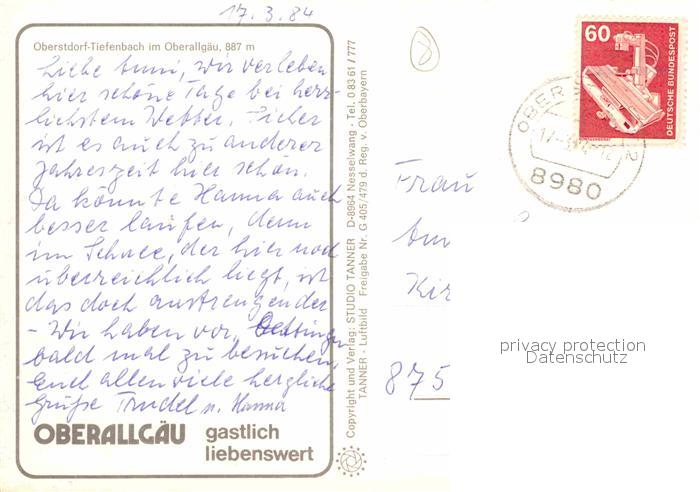 17.3.84
Oberstdorf-Tiefenbach im Oberallgäu, 887 m
Liebe Anni, wir verleben
hier schöne Tage bei herr-
lichstem Wetter. Sicher
ist es auch zu anderer
Jahreszeit hier schön.
Da könnte Hanna auch
besser laufen, denn
im Schnee, der hier noch
überreichlich liegt, ist
das doch anstrengender
- Wir haben vor, Oettingen
bald mal zu besuchen,
Euch allen viele herzliche
Grüße Trudel u. Hanna
OBERALLGÄU gastlich
liebenswert
Copyright und Verlag: STUDIO TANNER D-8964 Nesselwang · Tel. 0 83 61 / 777
TANNER - Luftbild Freigabe Nr. G 405/479 d. Reg. v. Oberbayern
8
60
DEUTSCHE BUNDESPOST
8980
Frau
Kir
875
privacy protection
Datenschutz